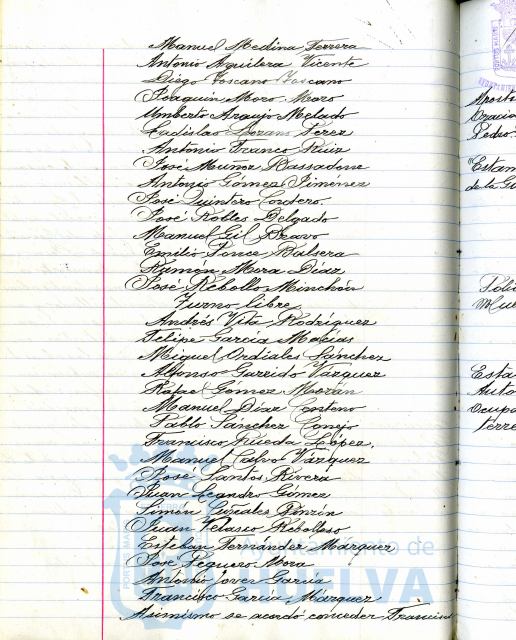 Manuel Medina Ferrera
Antonio Aguilera Vicente
Diego Toscano Toscano
Joaquin Moro Moro
Umberto Araujo Melado
Ladislao Lozano Perez
Antonio Franco Ruiz
José Muñoz Bassadone
Antonio Gómez Jimenez
José Quintero Cordero.
José Robles Delgado
Manuel Gil Bravo
Emilio Ponce Balsera
Ramón Mora Díaz
José Rebollo Minchón
Turno libre
Andrés Vita Rodríguez
Felipe García Macías
Miguel Ordiales Sánchez
Alfonso Garrido Vázquez
Rafael Gómez Morán
Manuel Díaz Centeno
Pablo Sánchez Conejo
Francisco Rueda López,
Manuel Calvo Vázquez
José Santos Rivera
Juan Leandro Gómez
Simón González Pinzón
Juan Velasco Rebolloso
Esteban Fernández Márquez
José Peguero Mora
Antonio Jover García
Francisco García Márquez
Asimismo se acordó conceder Francisc
Ayuntamiento de
HUELVA
Pedro
"Estam
de la Gu
Esta
Auto
Ocupa
terre